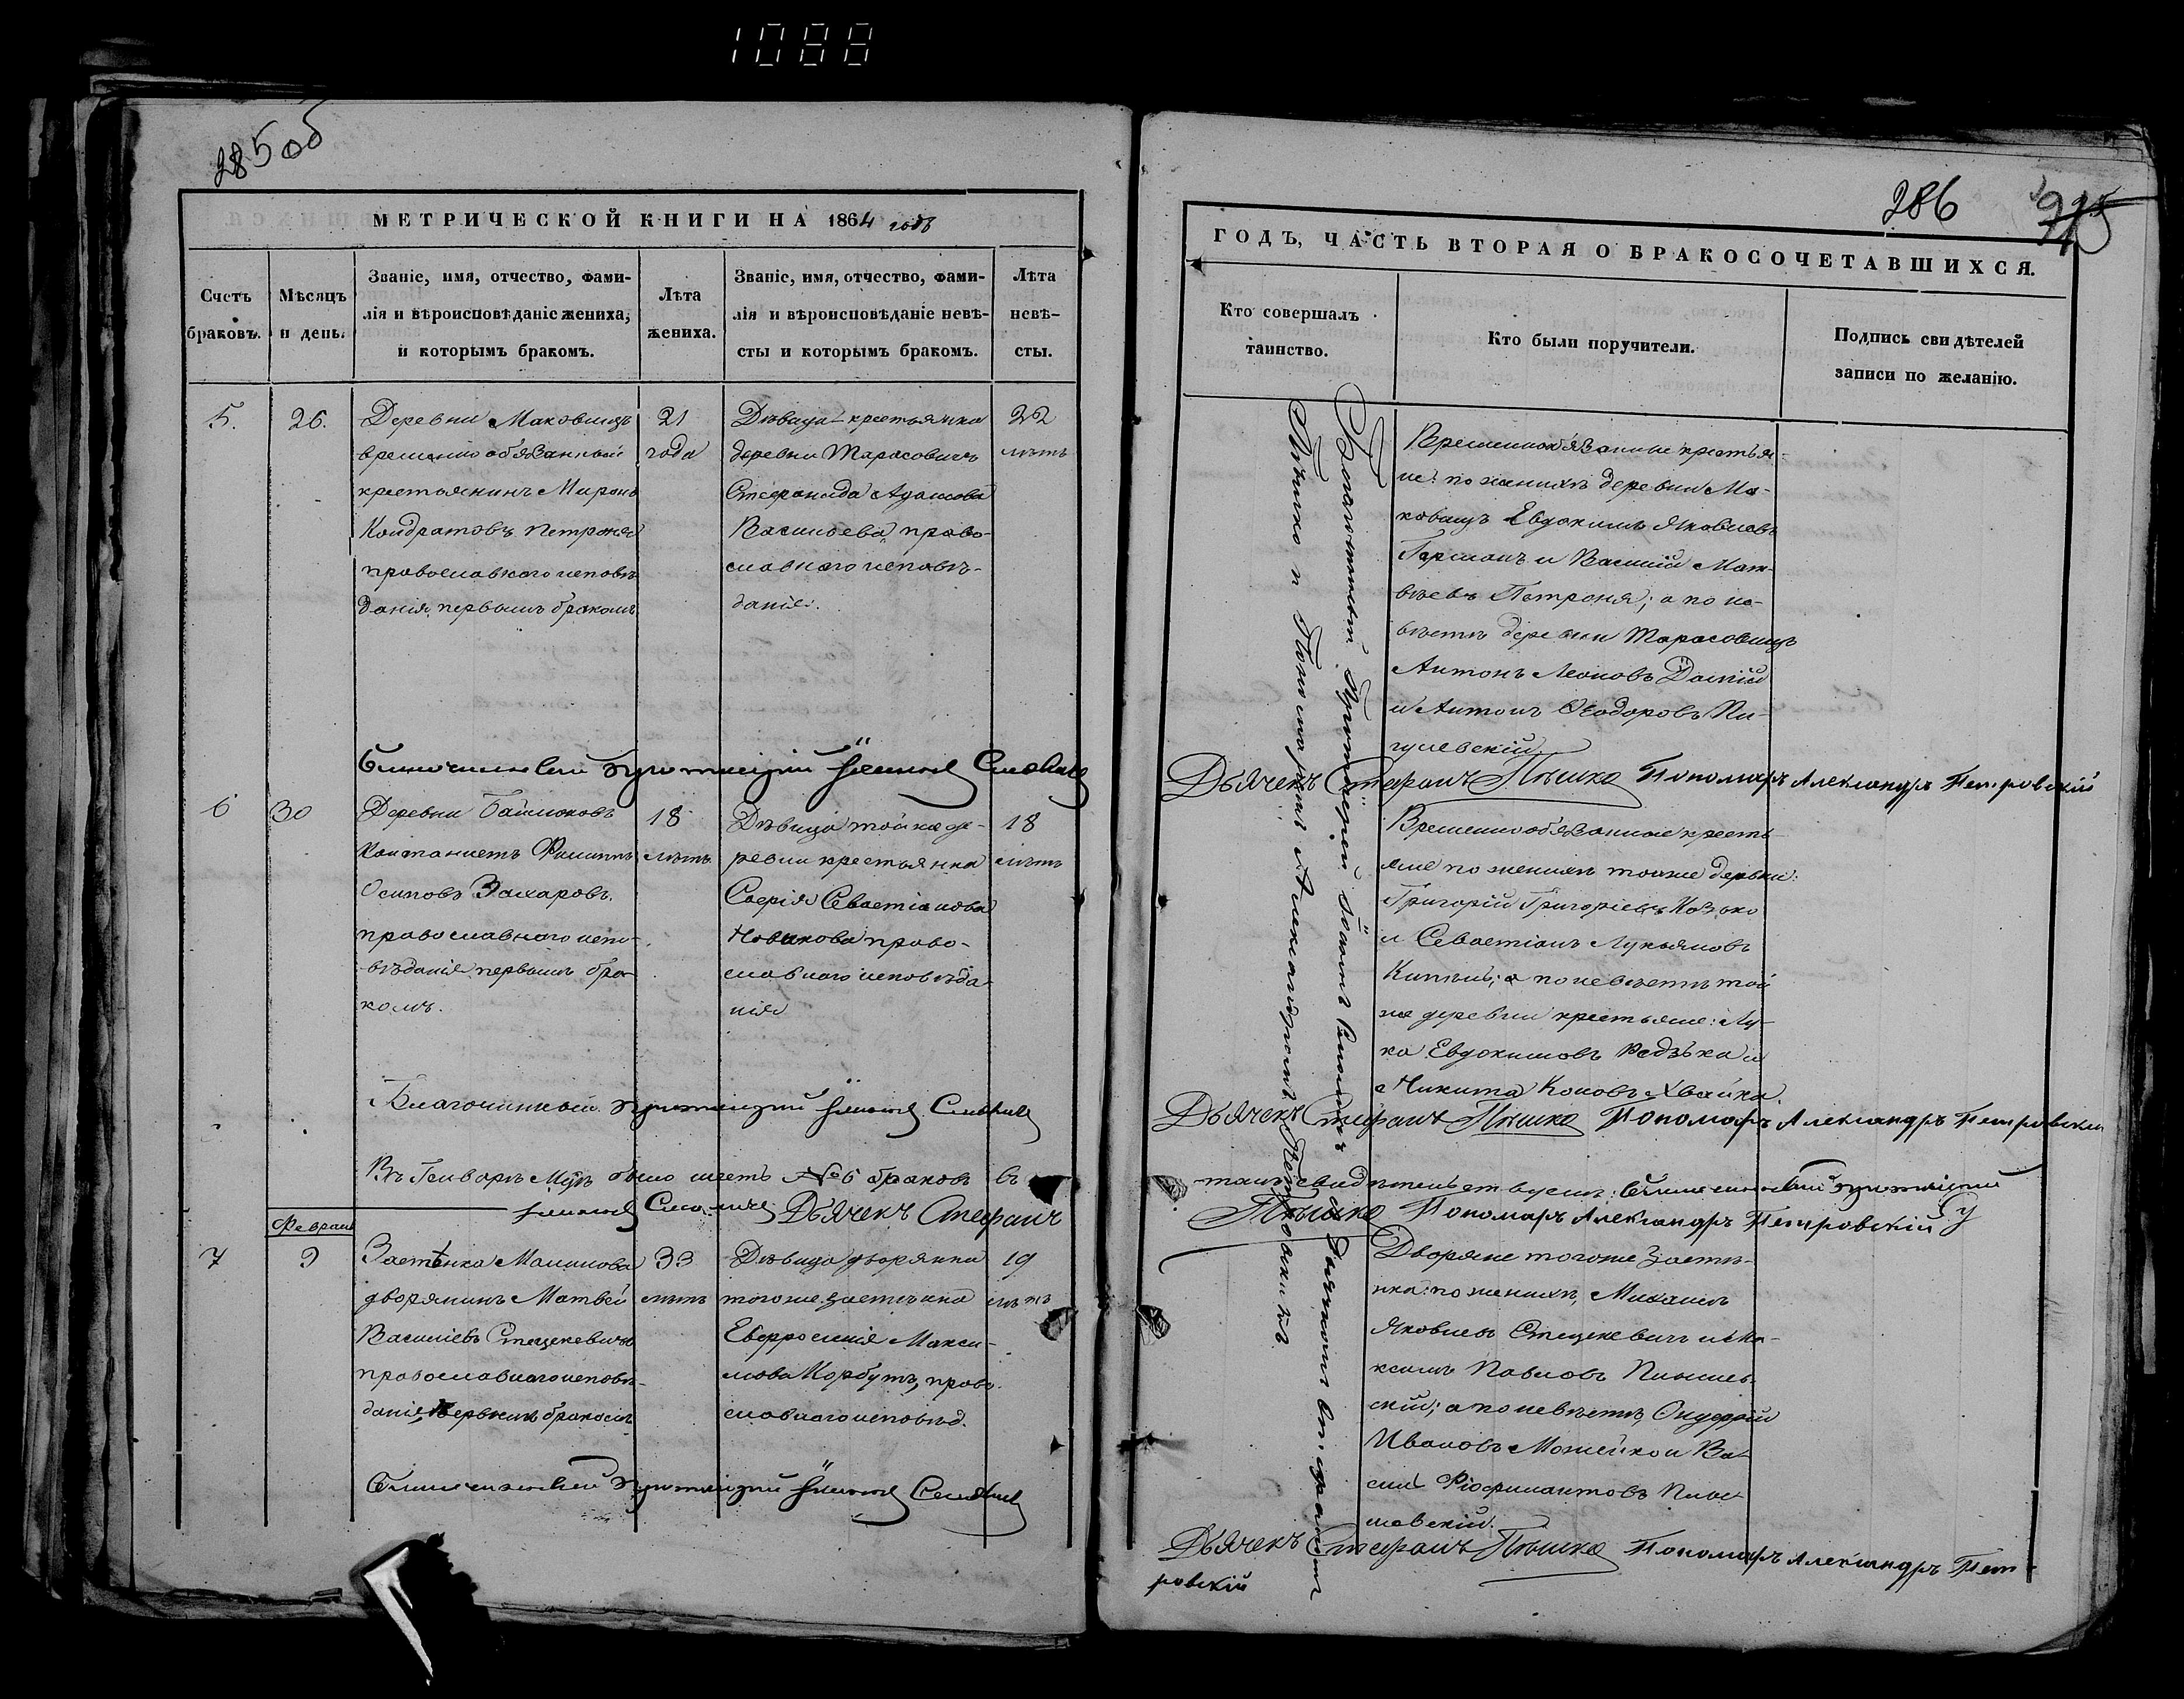 1088
285об
МЕТРИЧЕСКОЙ КНИГИ НА 1864 годъ
Счетъ браковъ.
Мѣсяцъ и день.
Званіе, имя, отчество, фами-
лія и вѣроисповѣданіе жениха,
и которымъ бракомъ.
Лѣта жениха.
Званіе, имя, отчество, фами-
лія и вѣроисповѣданіе невѣ-
сты и которымъ бракомъ.
Лѣта невѣ-
сты.
5.
26.
Деревни Маковищъ
временно обязанный
крестьянинъ Миронъ
Кондратовъ Петроня
православнаго исповѣ-
данія, первымъ бракомъ
21
года
Дѣвица крестьянка
деревни Тарасовичъ
Стефанида Адамова
Васильева право-
славнаго исповѣ-
данія.
22
лѣтъ
6
30
Деревни
Филиппъ
Осиповъ Захаровъ.
православнаго испо-
вѣданія первымъ бра-
комъ.
18
лѣтъ
Дѣвица той же де-
ревни крестьянка
Севастіанова
Новикова право-
славнаго исповѣда-
нія
18
лѣтъ
Благочинный Протоіерей Іоаннъ
Въ Генварѣ м-цѣ было шесть №6 браковъ въ
Дьячекъ Стефанъ
Февраль
7
9
Застѣнка
дворянинъ Матвей
Василіевъ Стецкевичъ
православнаго исповѣ-
данія, первымъ бракомъ
33
лѣтъ
Дѣвица дворянка
тогоже застѣнка
Евфросинія Макси-
мова Корбутъ, право-
славнаго исповѣд.
19
лѣтъ
286
ГОДЪ, ЧАСТЬ ВТОРАЯ О БРАКОСОЧЕТАВШИХСЯ.
Кто совершалъ
таинство.
Кто были поручители.
Подпись свидѣтелей
записи по желанію.
Временнообязанные крестья-
не: по женихѣ деревни Ма-
ковищъ Евдокимъ Яковлевъ
Германъ и Василій Мат-
вѣевъ Петроня; а по не-
вѣстѣ деревни Тарасовищъ
Антонъ Леоновъ
и Антонъ Ѳеодоровъ Пи-
гулевскій.
Дьячекъ Стефанъ Пѣшко Пономарь Александръ Петровскій
Временнообязанные кресть-
яне по женихѣ тоиже деревни:
Григорій Григоріевъ
и Севастіанъ Лукьяновъ
а по невѣстѣ той
же деревни крестьяне: Лу-
ка Евдокимовъ Редзька и
Никита Коновъ Хвайка.
Дьячекъ Стефанъ Пѣшко Пономарь Александръ Петровскій
томъ свидѣтельствуемъ: Протоіерей
Пѣшко Пономарь Александръ Петровскій
Дворяне тогоже застѣ-
нка: по женихѣ, Михаилъ
Яковлевъ Стецкевичъ и Ма-
ксимъ Павловъ
скій; а по невѣстѣ,
Ивановъ Можейко и Ва-
силій
Дьячекъ Стефанъ Пѣшко Пономарь Александръ Пет-
ровскій